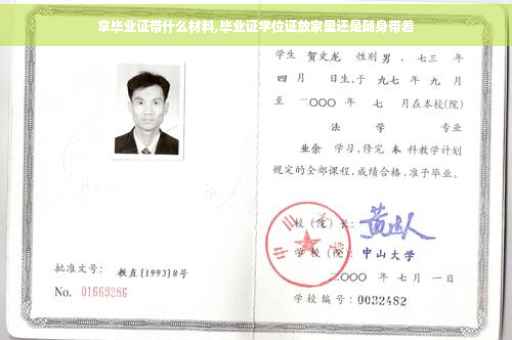 拿毕业证带什么材料,毕业证学位证放家里还是随身带着
学生 贺文龙 性别 男 、七三 年
四 月 日生,于 九七 年 九 月
至 二〇〇〇 年 七 月在本校(院)
法 学 专业
业余 学习,修完 本 科教学计划
规定的全部课程,成绩合格,准予毕业。
校(院)长:
学校(院): 中山大学
二〇〇〇 年 七 月 一 日
学校编号: 0032482
批准文号: 教直[1993]8号
No. 01669286